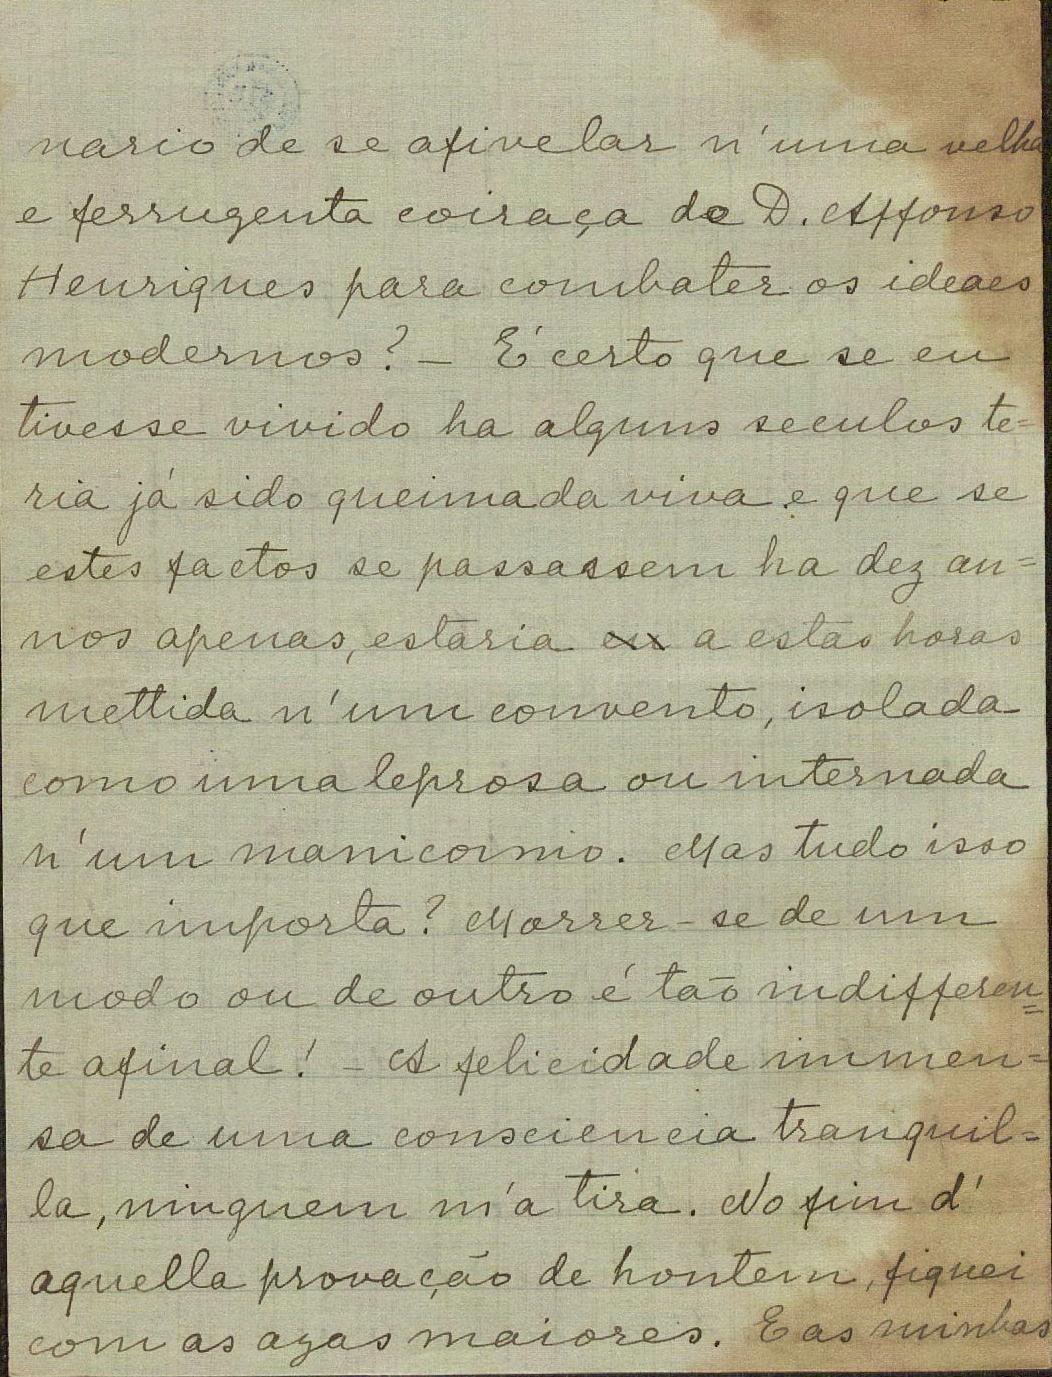 nario de se afivelar n'uma velha
e ferrugenta coiraça de D. Affonso
Henriques para combater os ideaes
modernos? — É certo que se eu
tivesse vivido ha alguns seculos te=
ria já sido queimada viva e que se
estes factos se passassem ha dez an=
nos apenas, estaria eu a estas horas
mettida n'um convento, isolada
como uma leprosa ou internada
n'um manicomio. Mas tudo isso
que importa? Morrer-se de um
modo ou de outro é tão indifferen=
te afinal! — A felicidade immen=
sa de uma consciencia tranquil=
la, ninguem m'a tira. No fim d'
aquella provação de hontem, fiquei
com as azas maiores. E as minhas